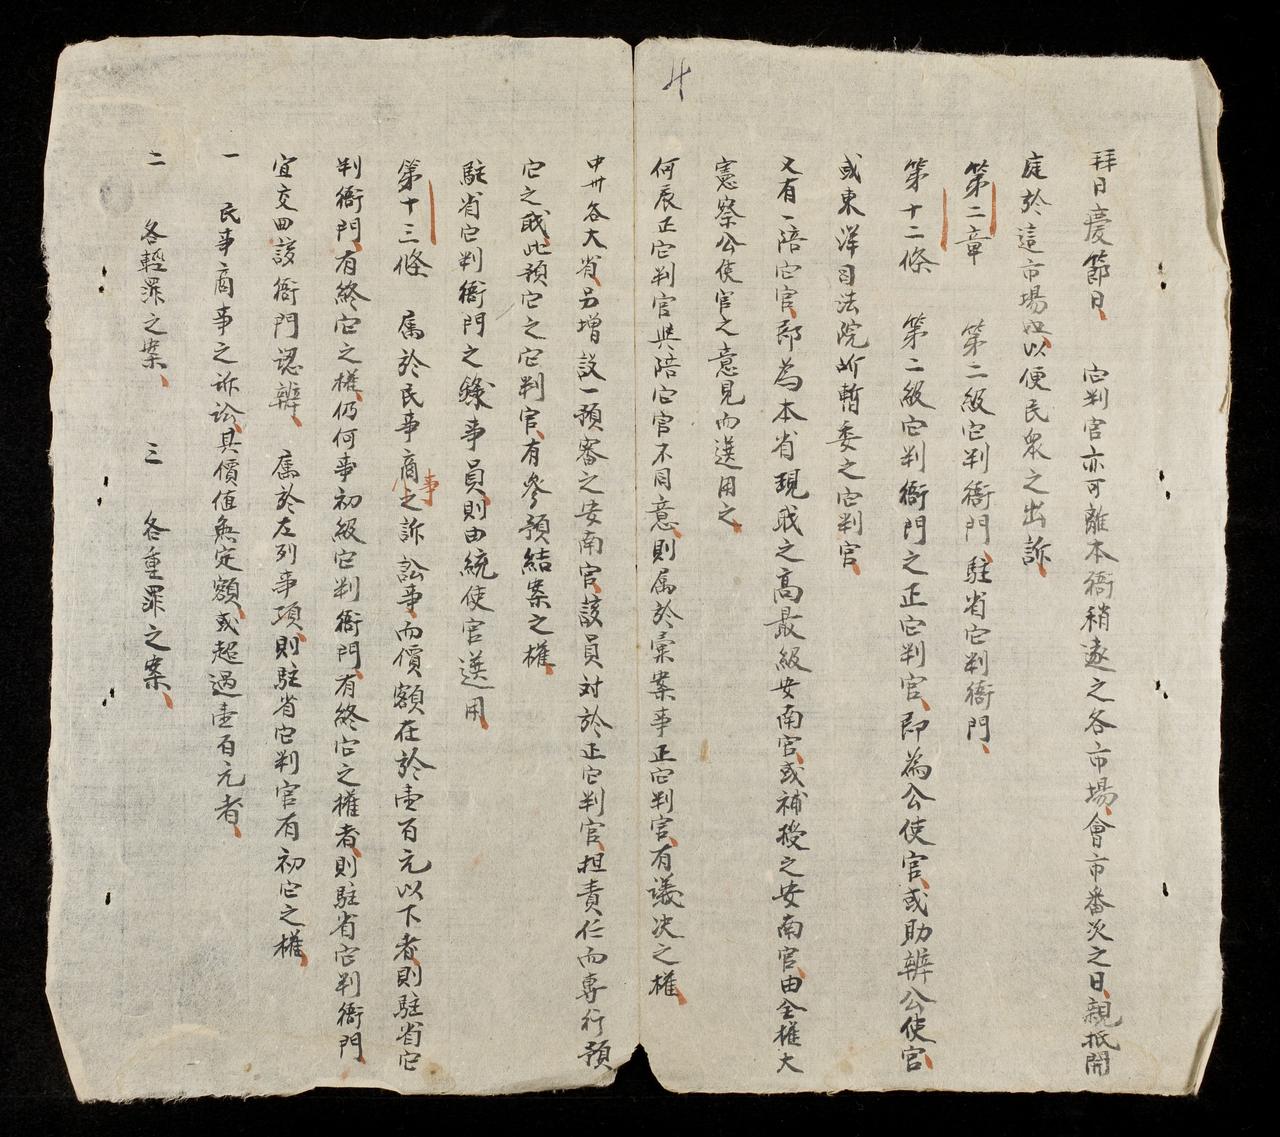 拜日慶節日、 㝎判官亦可離本衙稍遠之各市場、會市番次之日、親抵開
庭於這市場、以便民衆之出訴、
第二章 第二級㝎判衙門、駐省㝎判衙門、
第十二條 第二級㝎判衙門之正㝎判官、即為公使官、或助辨公使官、
或東洋司法院所暫委之㝎判官、
又有一陪㝎官、即為本省現戝之高最級安南官、或補授之安南官、由全權大
憲察公使官之意見而選用之、
何辰正㝎判官與陪㝎官不同意、則属於彙案事正㝎判官、有議決之權、
中圻各大省、另增設一預審之安南官、該員対於正㝎判官、担責任而專行預
㝎之戝、此預㝎之㝎判官、有參預結案之權、
駐省㝎判衙門之錄事員、則由統使官選用、
第十三條 属於民事商事之訴訟事、而價額在於壹百元以下者、則駐省㝎
判衙門、有終㝎之權、仍何事初級㝎判衙門、有終㝎之權者、則駐省㝎判衙門、
宜交囬該衙門認辨、 属於左列事項、則駐省㝎判官有初㝎之權、
一 民事商事之訴訟、其價值無定額、或超過壹百元者、
二 各輕罪之案、 三 各重罪之案、